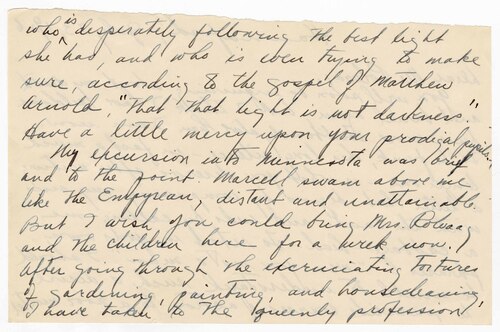 who is desperately following the best light
she has, and who is even trying to make
sure, according to the gospel of Matthew
Arnold, "That that light is not darkness."
Have a little mercy upon your prodigal pupils.
My excursion into Minnesota was brief
and to the point. Marcell swam above me
like the Empyrean, distant and unattainable.
But I wish you could bring Mrs. Rolvaag
and the children here for a week now.
After going through the excruciating tortures
of gardening, painting, and housecleaning,
I have taken to the "queenly profession"